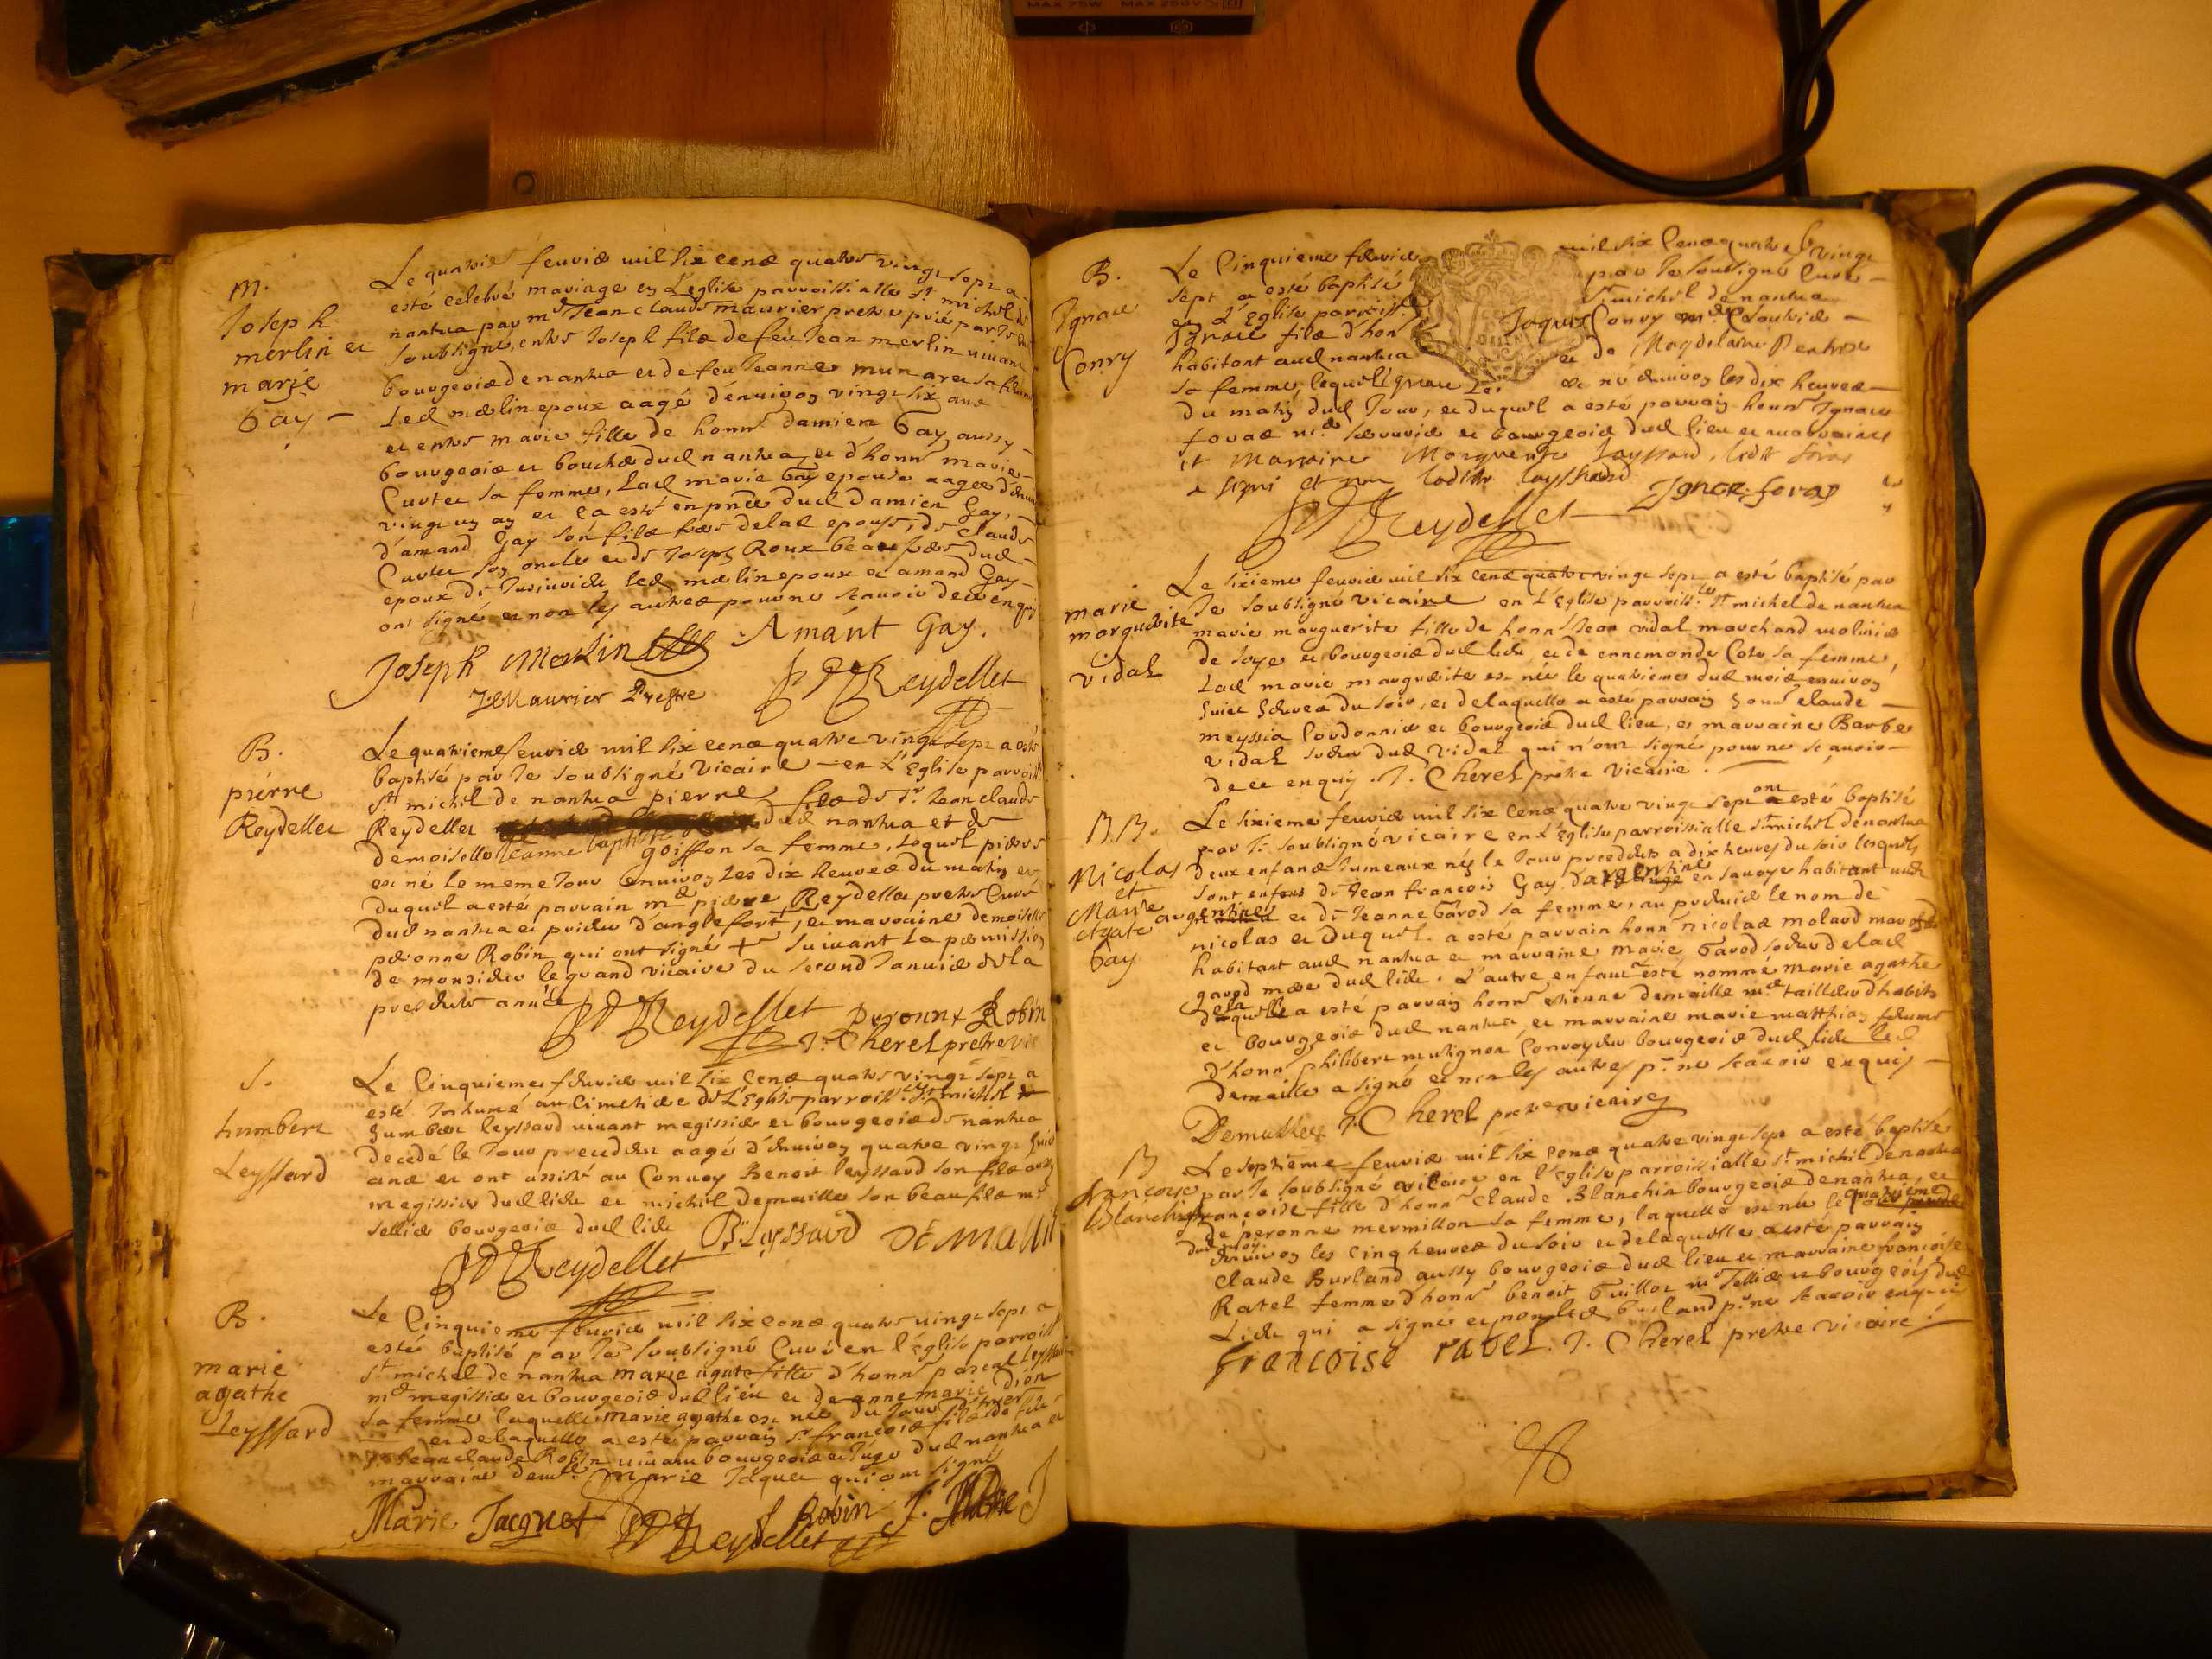 MAX 75W MAX 250V
m.
Joseph
merlin et
marie
Gay
Le quatries feuvier mil six cens quatre vingt sept a
esté celebré mariage en L'eglise parroissialle St michel de
nantua par mr Jean claude maurier pretre prié par le
soubsigné, entre Joseph fils de feu Jean merlin vivant
bourgeois de nantua et de feu Jeanne munarec sa femme
Led merlin epoux aagé d'environ vingt six ans
et entre marie fille de honnr damien Gay aussy
bourgeois et boucher dud nantua, et d'honnr marie
Curtet sa femme, Lad marie Gay epouse aagee d'environ
vingt un an et ca esté en pnce dud damien Gay,
d'amand Gay son fils frere de lad epouse, de claude
Curtet son oncle et de Joseph Roux beaufrere dud
epoux de Led merlin epoux et amand Gay
ont signé et non les autres pour ne scavoir de ce enquis
Joseph Merlin Amant Gay.
J C Maurier Prestre Reydellet
B.
pierre
Reydellet
Le quatrieme feuvier mil six cens quatre vingt sept a esté
baptisé par le soubsigné Vicaire en L'Eglise parroiss
St michel de nantua pierre fils de Sr Jean claude
Reydellet dud nantua et de
demoiselle Jeanne baptiste goiffon sa femme, lequel pierre
est né le meme Jour environ les dix heures du matin et
duquel a esté parrain mre pierre Reydellet pretre Curé
dud nantua et prieur d'anglefort, et marraine demoiselle
peronne Robin qui ont signé + suivant La permission
de monsieur le grand vicaire du second Januier de la
presente année
Reydellet peronne Robin
J. Cherel pretre vic
S.
humbert
Leyssard
Le Cinquieme feuvier mil six cens quatre vingt sept a
esté Inhumé au Cimetiere de L'Eglise parroiss. St michel
humber leyssard vivant megissier et bourgeois de nantua
decedé le Jour precedent aagé d'environ quatre vingt huit
ans et ont assisté au Convoy Benoit leyssard son fils aussy
megissier dud lieu et michel demaille son beau fils mr
sellier bourgeois dud lieu
B. Leyssard Demaille
Reydellet
B.
marie
agathe
Leyssard
Le Cinquieme feuvier mil six cens quatre vingt sept a
esté baptisé par le soubsigné Curé en l'église parroiss
St michel de nantua marie agate fille d'honnr pascal Leyssard
md megissier et bourgeois dud lieu et de anne marie dion
sa femme laquelle marie agathe est nee du Jour d'hyer
et de laquelle a esté parrain Sr francois fils de feu
Sr Jean claude Robin vivant bourgeois et Juge dud nantua et
marraine demlle Marie Jaquet qui ont signé
Marie Jacquet f Robin
Reydellet
B.
Ignace
Conry
Le Cinquieme feuvier mil six cens quatre vingt
sept a esté baptisé par le soubsigné Curé
en L'Eglise parroiss. St michel de nantua
Ignace fils d'honr Jaques Conry md
habitant aud nantua et de Magdelaine
sa femme, lequel Ignace est né environ les dix heures
du matin dud Jour, et duquel a esté parrain honnr Ignace
foras md et bourgeois dud lieu et marraine
et Marraine Marguerite Layssard, ledit foras
a signé et non laditte layssard Ignace foras
Reydellet
marie
marguerite
Vidal
Le sixieme feuvier mil six cens quatre vingt sept a esté baptisé par
le soubsigné vicaire en L'Eglise parroiss. St michel de nantua
marie marguerite fille de honnr Jean vidal marchand molinier
de soye et bourgeois dud lieu et de ennemonde Cote sa femme,
Lad marie marguerite est née le quatrieme dud mois environ
huict heures du soir, et de laquelle a esté parrain honnr claude
meyssia Cordonnier et bourgeois dud lieu, et marraine Barbe
vidal soeur dud Vidal qui n'ont signé pour ne scavoir
de ce enquis. J. Cherel pretre Vicaire.
BB.
Nicolas
et
Marie
Agate
Gay
Le sixieme feuvier mil six cens quatre vingt sept ont esté baptisé
par le soubsigné vicaire en L'Eglise parroissialle St michel de nantua
Deux enfans Jumeaux nés le Jour precedent a dix heures du soir lesquels
sont enfans de Jean francois Gay d'argentine en savoye habitant aud
argentine et de Jeanne Garod sa femme, au premier le nom de
nicolas et duquel a esté parrain honnr nicolas molard
habitant aud nantua et marraine marie Garod soeur de lad
garod mere dud lieu. L'autre enfant esté nommé marie agathe
de laquelle a esté parrain honnr etienne demaille me tailleur d'habits
et bourgeois dud nantua, et marraine marie matthias femme
d'honnr philibert mutignon Conroyeur bourgeois dud lieu led
demaille a signé et non les autres pr ne scavoir enquis
Demaille J. Cherel pretre vicaire
B
francoise
Blanchin
Le septieme feuvier mil six cens quatre vingt sept a esté baptisé
par le soubsigné vicaire en l'eglise parroissialle St michel de nantua
francoise fille d'honnr Claude Blanchin bourgeois de nantua, et
de peronne mermillon sa femme, laquelle est née le quatrieme
dud mois environ les cinq heures du soir et de laquelle a esté parrain
Claude Burland aussy bourgeois dud lieu et marraine francoise
Ratel femme d'honnr benoit Guillot mr sellier et bourgeois dud
Lieu qui a signé et non led burland pr ne scavoir enquis
francoise ratel. J. Cherel pretre vicaire